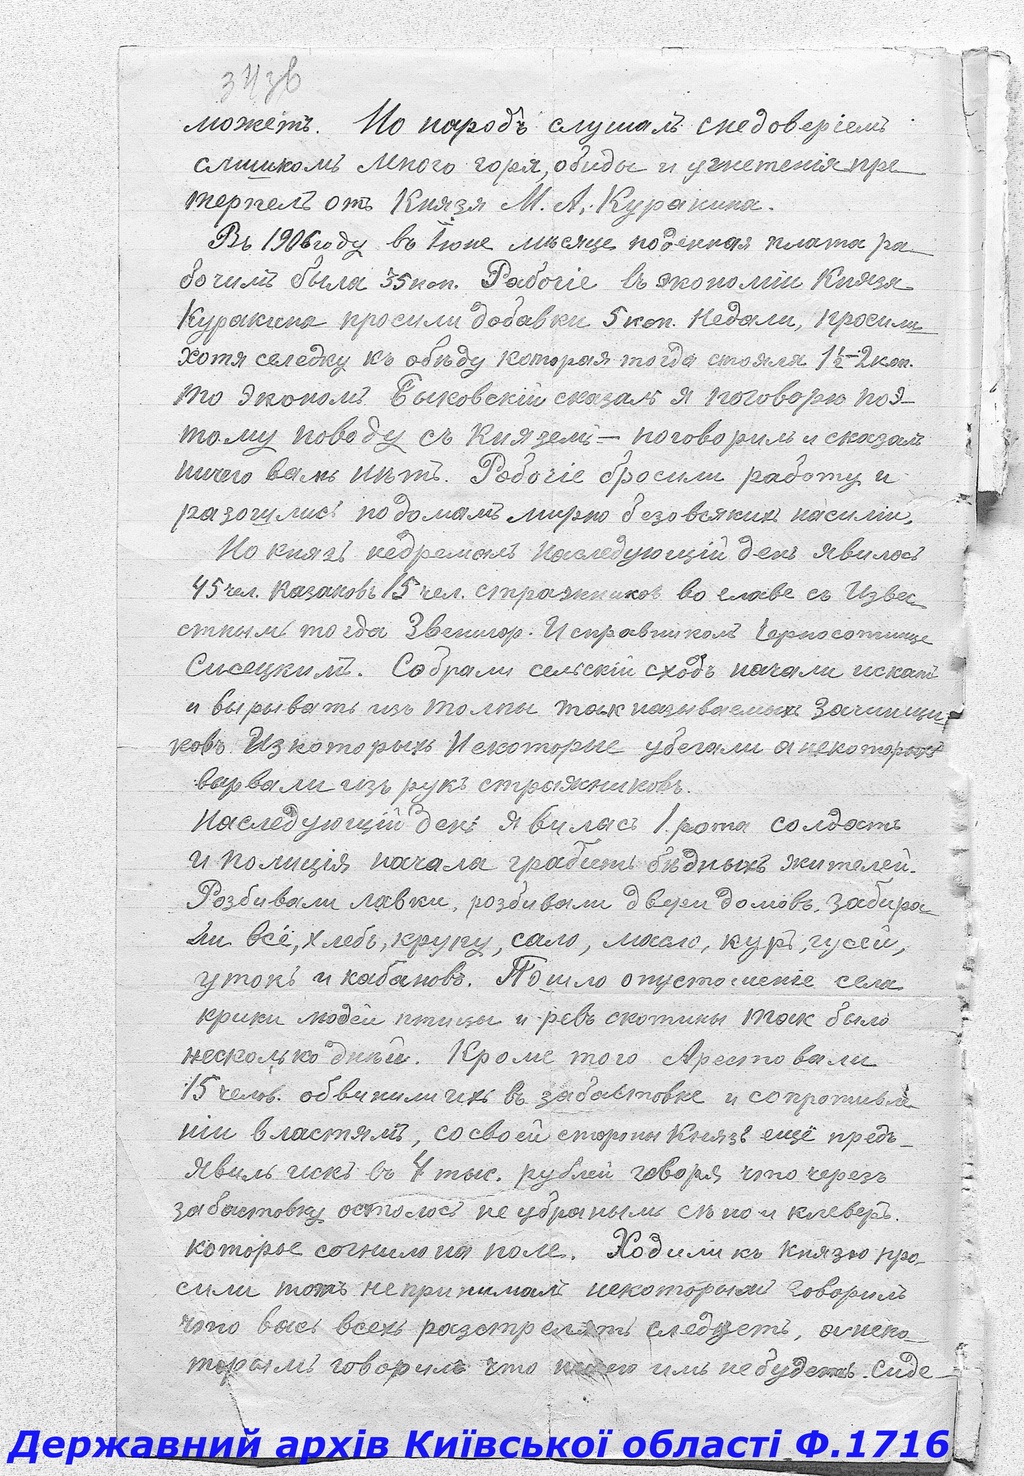 можетъ. Но народъ слушалъ снедоверіемъ
слишкомъ много горя, обиды и угнетенія пре
терпелъ отъ Князя М. А. Куракина.
Въ 1906 году въ Іюне мѣсяце поденная плата ра
бочимъ была 35 коп. Рабочіе въ экономіи Князя
Куракина просили добавки 5 коп. Недали, просили
хотя селедку къ обѣду которая тогда стояла 1½-2 коп.
то Экономъ Быковскій сказалъ я поговорю поэ-
тому поводу съ Княземъ — поговорилъ и сказалъ
ничего вамъ нѣтъ. Рабочіе бросили работу и
разошлись подомамъ мирно безовсякихъ насилій,
Но князь недремалъ Наследующій день явилось
45 чел. Казаковъ 15 чел. стражниковъ во главе съ Изве
стнымъ тогда Звенигор. Исправникомъ Черносотнице
Сисецкимъ. Собрали сельскій сходъ начали искать
и вырывать изъ толпы такназываемыхъ Зачинщи
ковъ. Изкоторыхъ Некоторые убегали анекоторыхъ
варвали изъ рукъ стражниковъ.
Наследующій день Явилась 1. рота солдатъ
и полиція начала грабить бѣдныхъ жителей.
Розбивали лавки, розбивали двери домовъ. Забира
ли всё, хлебъ, крупу, сало, масло, куръ, гусей,
утокъ и кабановъ. Пошло опустошеніе села
крики людей птицы и ревъ скотины так было
несколько дней. Кроме того Арестовали
15 челов. обвинили ихъ въ забастовке и сопротивле
ніи властямъ, со своей стороны Князь ещё предъ-
явилъ искъ въ 4 тыс. рублей говоря что черезъ
забастовку осталось не убранымъ сѣно и клеверъ.
которое согнило на поле. Ходили къ Князю про-
сили тотъ не принималъ некоторымъ говорилъ
что васъ всехъ разстрелять следуетъ, а неко-
торымъ говорилъ что имъ не будетъ. Сиде-
Державний архів Київської області Ф.1716